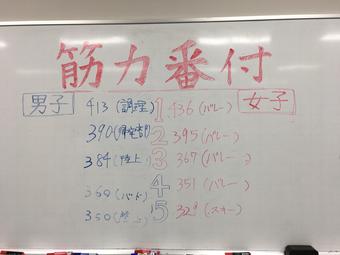 筋力番付
男子 女子
413 (調理) 1 436 (バレー)
390 (帰宅部) 2 395 (バレー)
384 (陸上) 3 367 (バレー)
360 (バド) 4 351 (バレー)
350 5 329 (スキー)